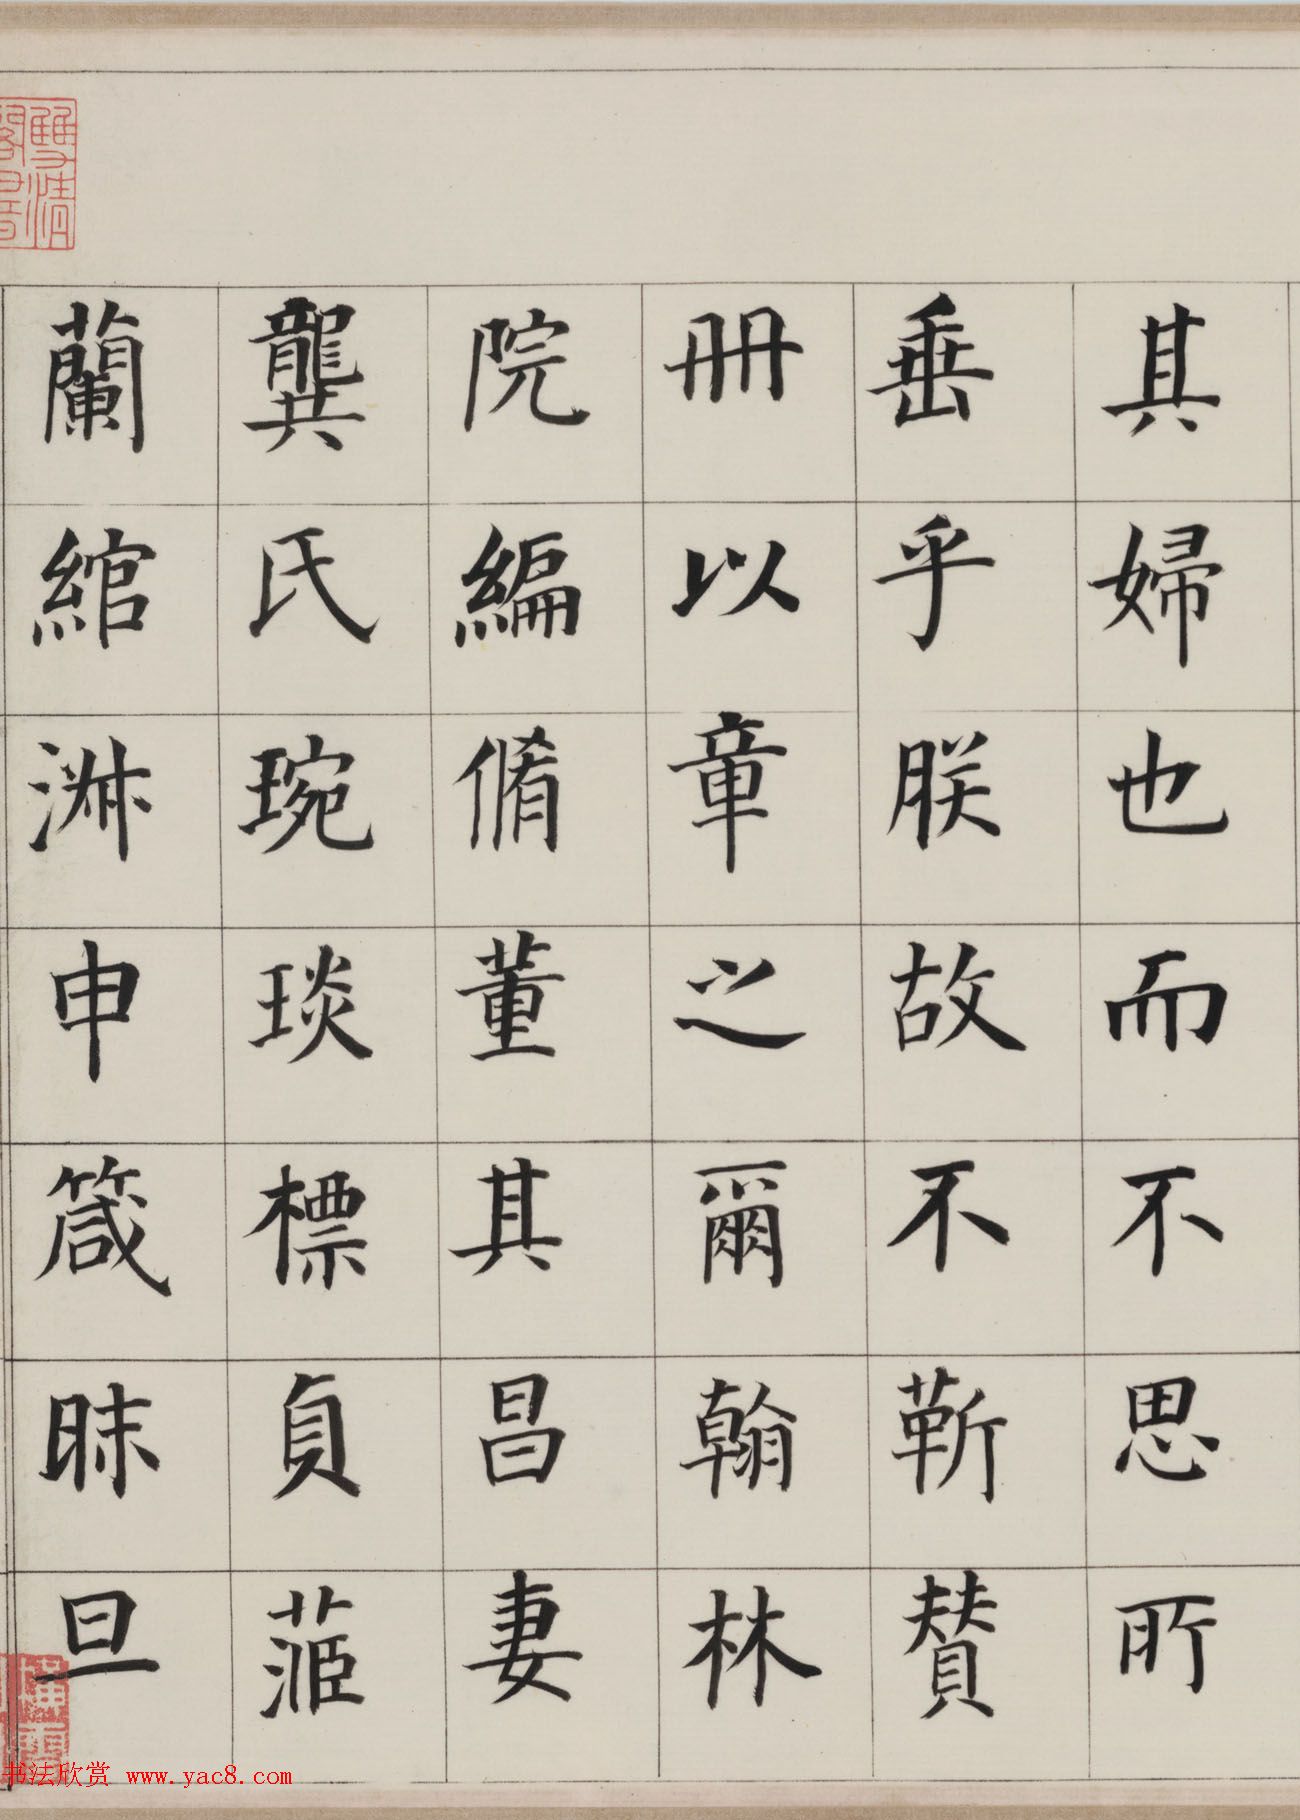 其婦也而不思所
垂乎朕故不靳賛
册以章之爾翰林
院編脩董其昌妻
龔氏琬琰標貞茝
蘭綰淋申箴昧旦
雙清
书法欣赏 www.yac8.com